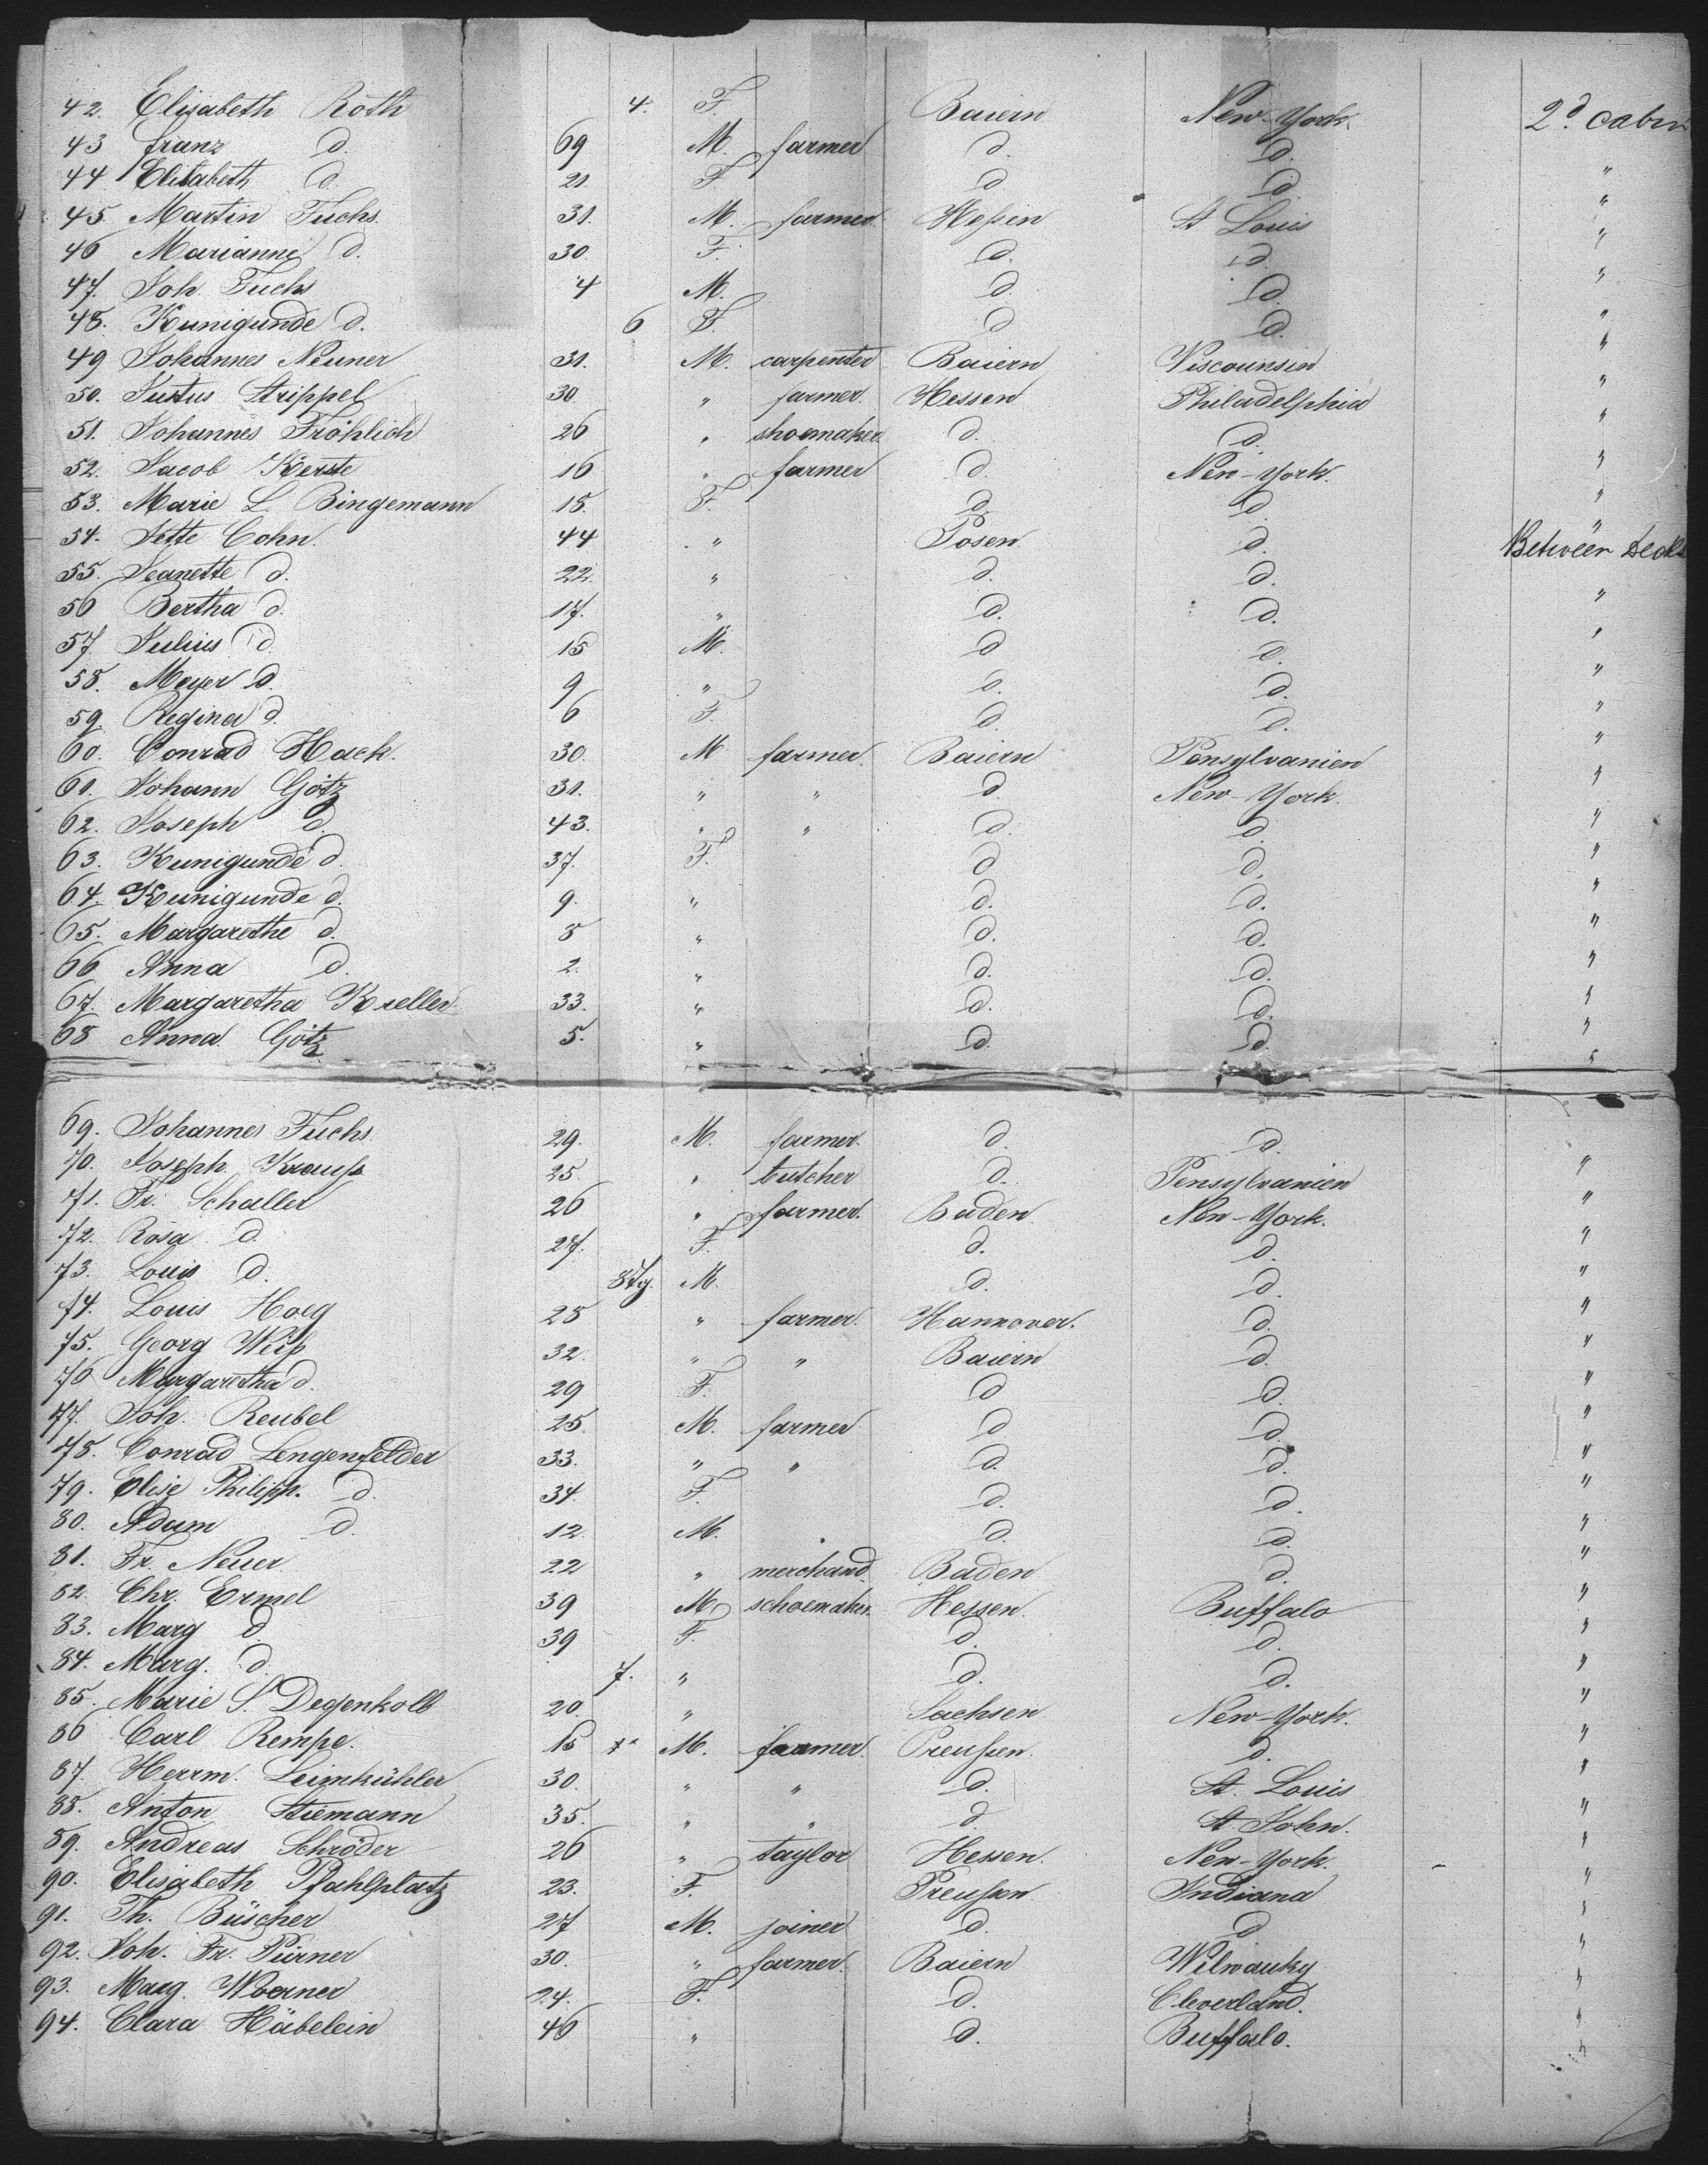 42. Elisabeth Roth 4. F. Baiern New-York 2d. cabin
43 franz d. 69 M. farmer d. d. "
44 Elisabeth d. 21. F d d "
45 Martin Fuchs. 31. M. farmer Heßen St Louis "
46 Marianne d. 30. F. d. d. "
47. Joh. Fuchs 4 M. d. d. "
48. Kunigunde d. 6 F. d d. "
49 Johannes Neuner 31. M. carpenter Baiern Viscounsin "
50. Justus Strippel 30. " farmer. Hessen Philadelphia "
51. Johannes Fröhlich 26 " shoemaker d. d. "
52. Jacob Kerste 16 " farmer d. New-York. "
53. Marie L. Bingemann 18. F. d. d. "
54. Jette Cohn. 44 " Posen d. Between Decks
55. Jeanette d. 22. " d. d. "
56 Bertha d. 17. " d. d. "
57. Julius d. 15 M. d d. "
58. Meyer d. 9 " d. d. "
59. Regina d. 6 F. d. d. "
60. Conrad Hack. 30. M farmer. Baiern Pensylvanien "
61. Johann Götz 31. " " d. New-York. "
62. Joseph d. 43. " " d. d. "
63. Kunigunde d. 37. F. d d. "
64. Kunigunde d. 9. " d. d. "
65. Margarethe d. 8 " d. d. "
66 Anna d. 2. " d. d. "
67. Margaretha Kreller. 33. " d. d. "
68 Anna Götz 5. " d. d. "
69. Johannes Fuchs. 29. M. farmer. d. d.
70. Joseph Krauß 25. " butcher d. Pensylvanien "
71. Fr. Schaller 26 " farmer. Baden New-York. "
72. Rosa d. 27. F. d. d. "
73. Louis d. 8 Tg. M. d. d. "
74. Louis Hoeg 28 " farmer. Hannover. d. "
75. Georg Weiß 32. " " Baiern d. "
76 Margaretha d. 29 F. d d. "
77. Joh. Reubel 25. M. farmer d d. "
78. Conrad Lengenfelder 33. " " d. d. "
79. Elise Philipp. d. 34. F. d. d. "
80. Adam d. 12. M. d. d. "
81. Fr. Neuer 22 " merchand Baden d. "
82. Chr. Ermel 39 M. schoemaker. Hessen. Buffalo "
83. Marg d 39 F. d. d. "
84. Marg. d. 7. " d. d. "
85. Marie S. Degenkolb 20. " Sachsen. New-York. "
86 Carl Rempe. 15 M. farmer. Preußen. d. "
87. Herrm. Leimkühler 30. " " d. St. Louis "
88. Anton Stiemann 35. " " d. St. John. "
89. Andreas Schröder 26 " taylor Hessen. New-York. "
90. Elisabeth Pfahlplatz 23. F. Preußen Indiana "
91. Th. Büscher 27 M. joiner d. d "
92. Joh. Fr. Pürner 30. " farmer. Baiern Wilwauky "
93. Marg. Woerner 24. F. d. Cleverland. "
94. Clara Häbelein 46 " d. Buffalo. "